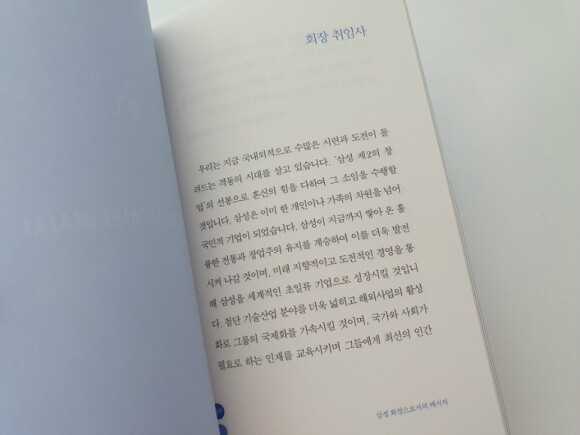 회장 취임사
우리는 지금 국내외적으로 수많은 시련과 도전이 몰
려드는 격동의 시대를 살고 있습니다. '삼성 제2의 창
업'의 선봉으로 혼신의 힘을 다하여 그 소임을 수행할
것입니다. 삼성은 이미 한 개인이나 가족의 차원을 넘어
국민적 기업이 되었습니다. 삼성이 지금까지 쌓아 온 훌
륭한 전통과 창업주의 유지를 계승하여 이를 더욱 발전
시켜 나갈 것이며, 미래 지향적이고 도전적인 경영을 통
해 삼성을 세계적인 초일류 기업으로 성장시킬 것입니
다. 첨단 기술산업 분야를 더욱 넓히고 해외사업의 활성
화로 그룹의 국제화를 가속시킬 것이며, 국가와 사회가
필요로 하는 인재를 교육시키며 그들에게 최선의 인간
삼성 회장으로서의 메시지